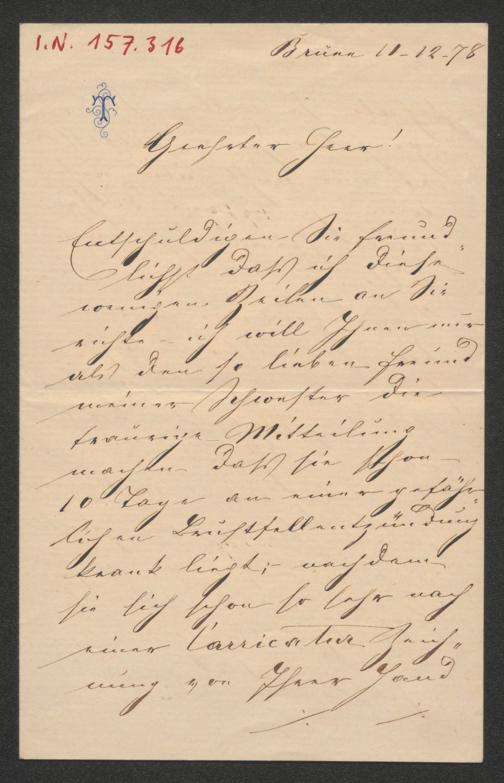 I.N. 157.316
Brünn 11-12-78
T
Geehrter Herr!
Entschuldigen Sie freund
lichst daß ich diese
wenigen Zeilen an Sie
richte - ich will Ihnen nur
als den so lieben Freund
meiner Schwester die
traurige Mitteilung
machen daß sie schon
10 Tage an einer gefähr„
lichen Brustfellentzündung
krank liegt; nachdem
sie sich schon so sehr nach
einer Carricatur Zeich„
nung von Ihrer Hand